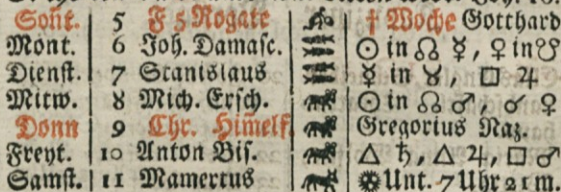 Soñt. 5 F 5 Rogate † Woche Gotthard
Mont. 6 Joh. Damasc. ☉ in ☊ ☿, ♀ in ☋
Dienst. 7 Stanislaus ☿ in ♉, □ ♃
Mitw. 8 Mich. Ersch. ☉ in ☊ ♂, ☌ ♀
Donn 9 Chr. Him̃elf. Gregorius Naz.
Freyt. 10 Anton Bis. △ ♄, △ ♃, □ ♂
Samst. 11 Mamertus Unt. 7 Uhr 21 m.